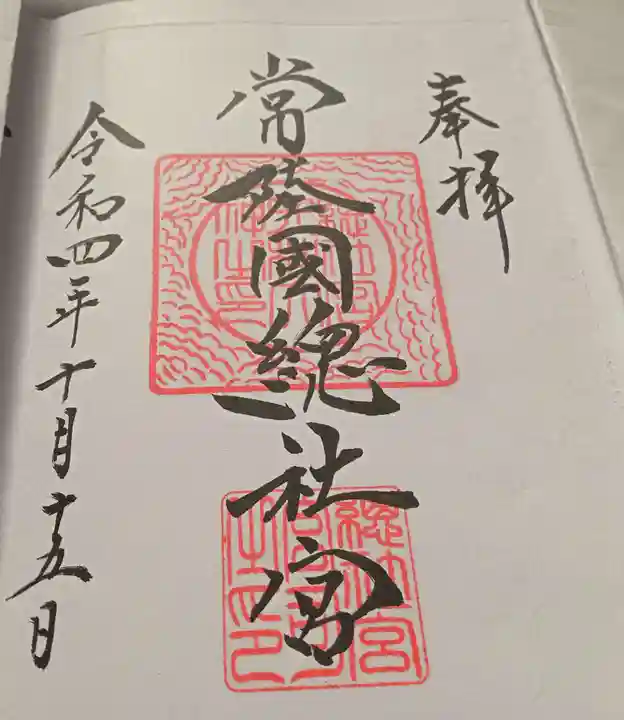 奉拝
常陸國總社宮
令和四年十月十五日